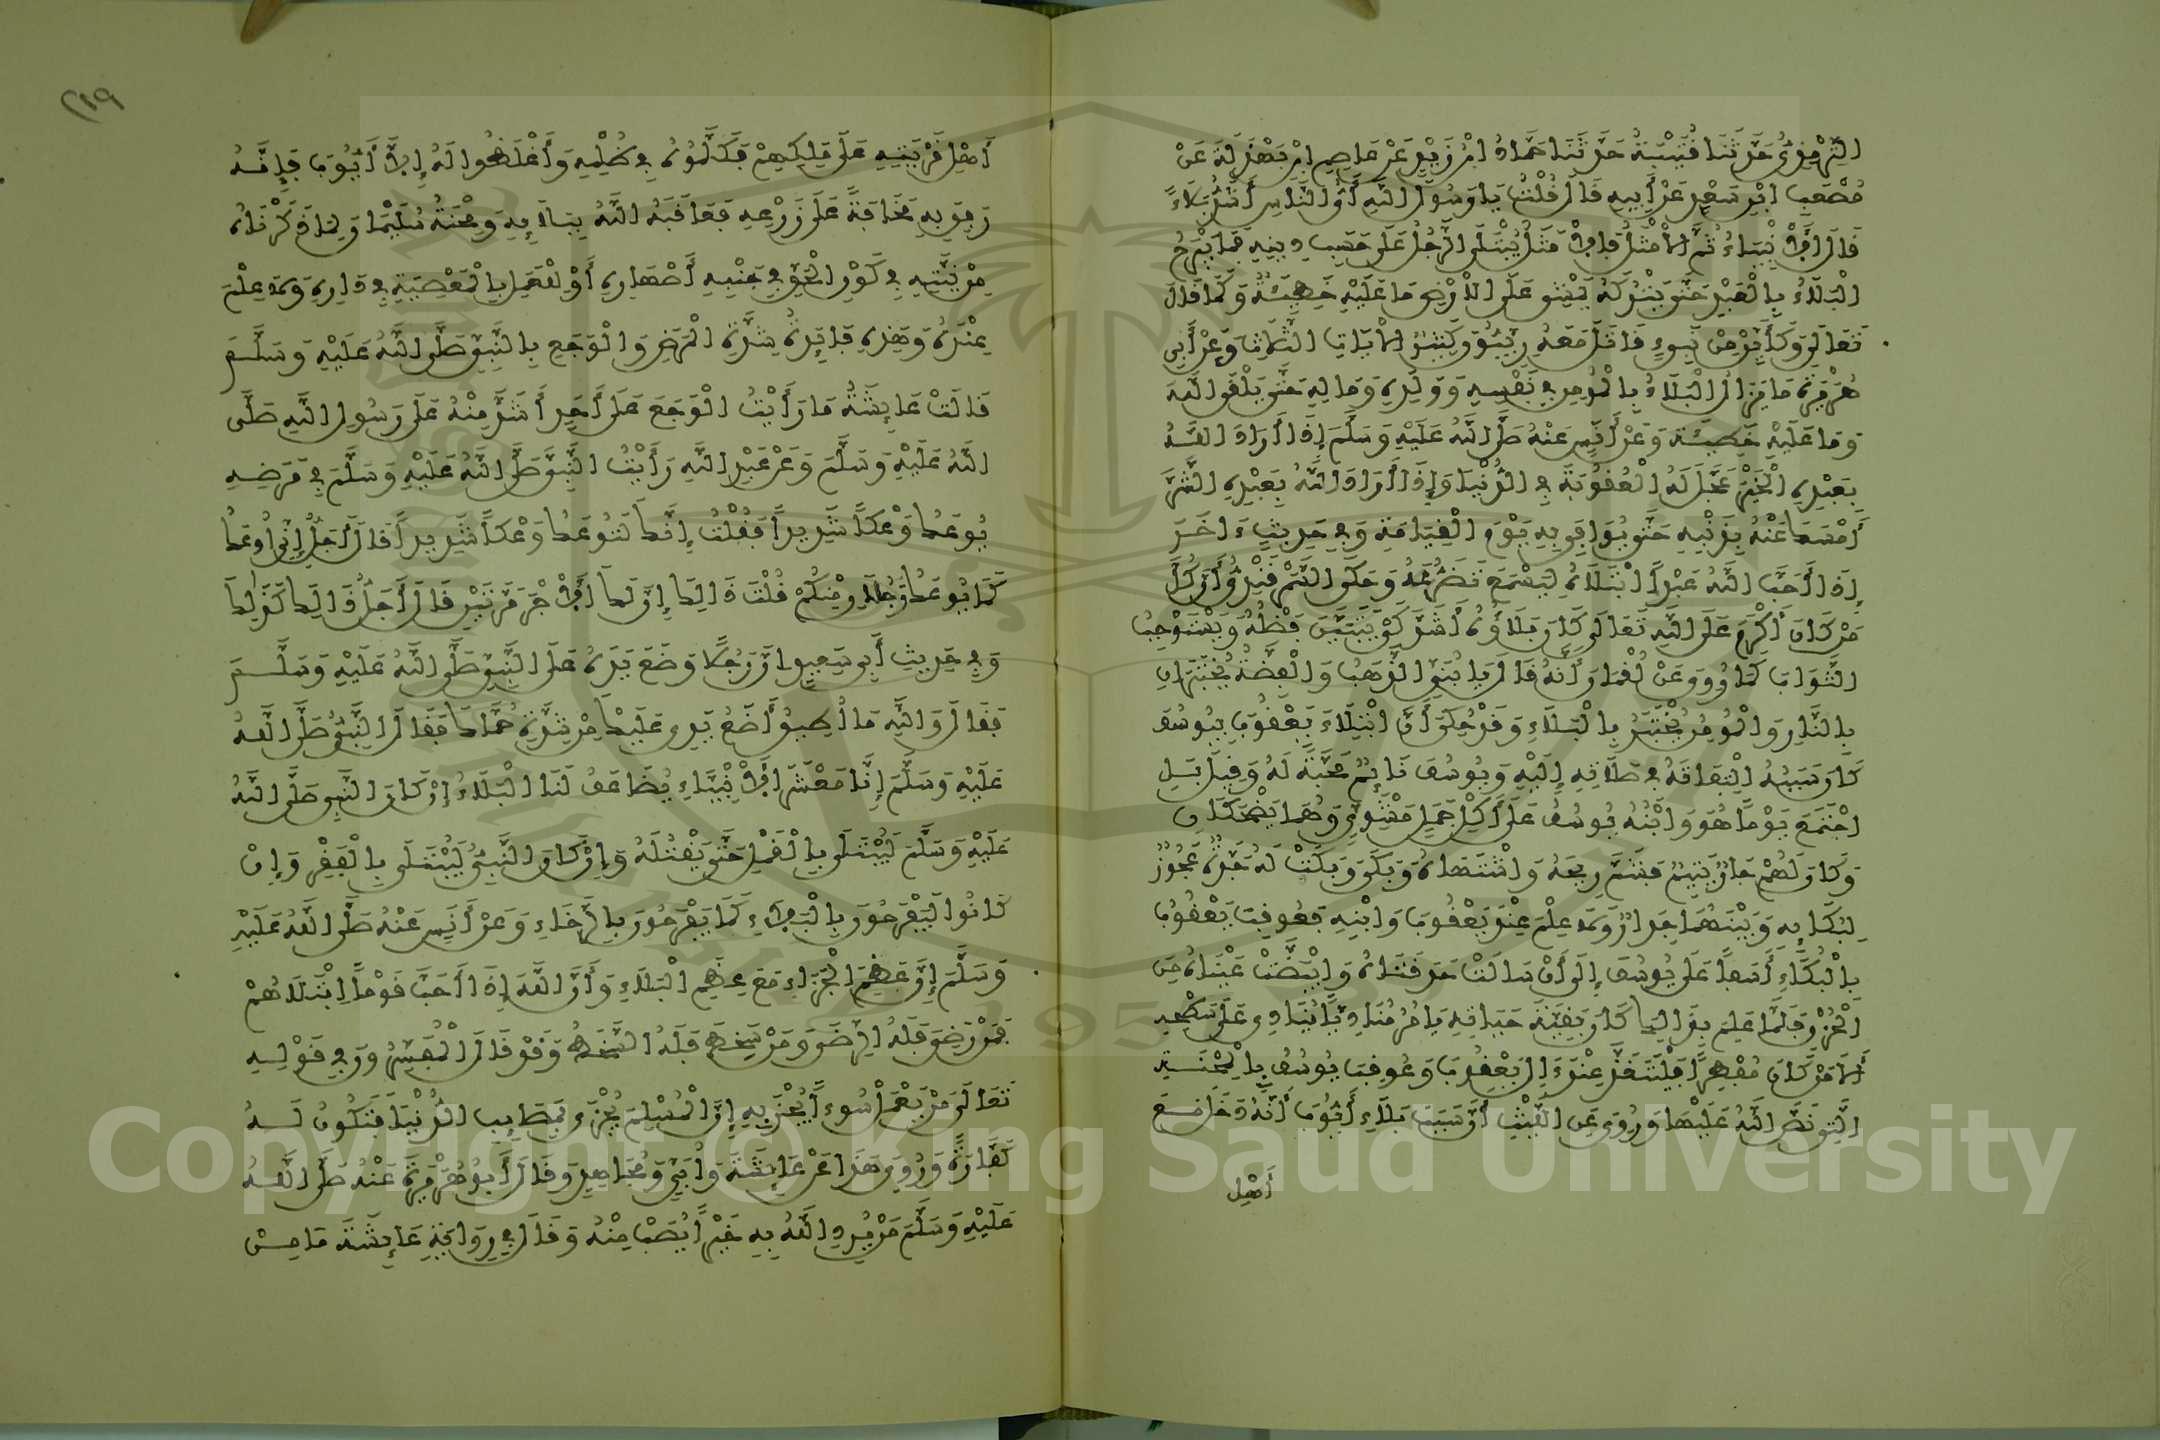 التِّرْمِذِيُّ حَدَّثَنَا قُتَيْبَةُ حَدَّثَنَا حَمَّادُ ابْنُ زَيْدٍ عَنْ عَاصِمِ ابْنِ بَهْدَلَةَ عَنْ
مُصْعَبِ ابْنِ سَعْدٍ عَنْ أَبِيهِ قَالَ قُلْتُ يَا رَسُولَ اللَّهِ أَيُّ النَّاسِ أَشَدُّ بَلَاءً
قَالَ الْأَنْبِيَاءُ ثُمَّ الْأَمْثَلُ فَالْأَمْثَلُ يُبْتَلَى الرَّجُلُ عَلَى حَسَبِ دِينِهِ فَمَا يَبْرَحُ
الْبَلَاءُ بِالْعَبْدِ حَتَّى يَتْرُكَهُ يَمْشِي عَلَى الْأَرْضِ مَا عَلَيْهِ خَطِيئَةٌ وَكَمَا قَالَ
تَعَالَى وَكَأَيِّنْ مِنْ نَبِيءٍ قَاتَلَ مَعَهُ رِبِّيُّونَ كَثِيرٌ الْآيَاتِ الثَّلَاثَ وَعَنْ أَبِي
هُرَيْرَةَ مَا يَزَالُ الْبَلَاءُ بِالْمُؤْمِنِ فِي نَفْسِهِ وَوَلَدِهِ وَمَالِهِ حَتَّى يَلْقَى اللَّهَ
وَمَا عَلَيْهِ خَطِيئَة وَعَنْ أَنَسٍ عَنْهُ صَلَّى اللَّهُ عَلَيْهِ وَسَلَّمَ إِذَا أَرَادَ اللَّهُ
بِعَبْدِهِ الْخَيْرَ عَجَّلَ لَهُ الْعُقُوبَةَ فِي الدُّنْيَا وَإِذَا أَرَادَ اللَّهُ بِعَبْدِهِ الشَّرَّ
أَمْسَكَ عَنْهُ بِذَنْبِهِ حَتَّى يُوَافِيَ بِهِ يَوْمَ الْقِيَامَةِ وَفِي حَدِيثٍ ءَاخَرَ
إِذَا أَحَبَّ اللَّهُ عَبْداً ابْتَلَاهُ لِيَسْمَعَ تَضَرُّعَهُ وَحَكَى السَّمَرْقَنْدِيُّ أَنَّ كُلَّ
مَنْ كَانَ أَكْرَمَ عَلَى اللَّهِ تَعَالَى كَانَ بَلَاؤُهُ أَشَدَّ كَيْ يَتَبَيَّنَ فَضْلُهُ وَيَسْتَوْجِبَ
الثَّوَابَ كَمَا رُوِيَ عَنْ لُقْمَانَ أَنَّهُ قَالَ يَا بُنَيَّ الذَّهَبُ وَالْفِضَّةُ يُخْتَبَرَانِ
بِالنَّارِ وَالْمُؤْمِنُ يُخْتَبَرُ بِالْبَلَاءِ وَقَدْ حُكِيَ أَنَّ ابْتِلَاءَ يَعْقُوبَ بِيُوسُفَ
كَانَ سَبَبُهُ الْتِفَاتَهُ فِي صَلَاتِهِ إِلَيْهِ وَيُوسُفُ نَائِمٌ مَحَبَّةً لَهُ وَقِيلَ بَلِ
اجْتَمَعَ يَوْماً هُوَ وَابْنُهُ يُوسُفُ عَلَى أَكْلِ حَمَلٍ مَشْوِيٍّ وَهُمَا يَضْحَكَانِ
وَكَانَ لَهُمْ جَارٌ يَتِيمٌ فَشَمَّ رِيحَهُ وَاشْتَهَاهُ وَبَكَى وَبَكَتْ لَهُ جَدَّةٌ عَجُوزٌ
لِبُكَائِهِ وَبَيْنَهُمَا جِدَارٌ وَلَا عِلْمَ عِنْدَ يَعْقُوبَ وَابْنِهِ فَعُوقِبَ يَعْقُوبُ
بِالْبُكَاءِ أَسَفاً عَلَى يُوسُفَ إِلَى أَنْ سَالَتْ حَدَقَتَاهُ وَابْيَضَّتْ عَيْنَاهُ مِنَ
الْحُزْنِ فَلَمَّا عَلِمَ بِذَالِكَ كَانَ بَقِيَّةَ حَيَاتِهِ يَامُرُ مُنَادِياً يُنَادِي عَلَى سَطْحِهِ
أَلَا مَنْ كَانَ مُفْطِراً فَلْيَتَغَدَّ عِنْدَ ءَالِ يَعْقُوبَ وَعُوقِبَ يُوسُفُ بِالْمِحْنَةِ
الَّتِي نَصَّ اللَّهُ عَلَيْهَا وَرُوِيَ عَنِ اللَّيْثِ أَنَّ سَبَبَ بَلَاءِ أَيُّوبَ أَنَّهُ دَخَلَ مَعَ
أَهْلِ
٢١٩
أَهْلِ قَرْيَتِهِ عَلَى مَلِكِهِمْ فَكَلَّمُوهُ فِي ظُلْمِهِ وَأَغْلَظُوا لَهُ إِلَّا أَيُّوبَ فَإِنَّهُ
رَفِقَ بِهِ مَخَافَةً عَلَى زَرْعِهِ فَعَاقَبَهُ اللَّهُ بِبَلَائِهِ وَمِحْنَةُ سُلَيْمَانَ لِمَا ذَكَرْنَاهُ
مِنْ نِيَّتِهِ فِي كَوْنِ الْحَقِّ فِي جَنْبِهِ أَصْهَارِهِ أَوْ لِلْعَمَلِ بِالْمَعْصِيَةِ فِي دَارِهِ وَلَا عِلْمَ
عِنْدَهُ وَهَذِهِ فَائِدَةُ شِدَّةِ الْمَرَضِ وَالْوَجَعِ بِالنَّبِيِّ صَلَّى اللَّهُ عَلَيْهِ وَسَلَّمَ
قَالَتْ عَائِشَةُ مَا رَأَيْتُ الْوَجَعَ عَلَى أَحَدٍ أَشَدَّ مِنْهُ عَلَى رَسُولِ اللَّهِ صَلَّى
اللَّهُ عَلَيْهِ وَسَلَّمَ وَعَنْ عَبْدِ اللَّهِ رَأَيْتُ النَّبِيَّ صَلَّى اللَّهُ عَلَيْهِ وَسَلَّمَ فِي مَرَضِهِ
يُوعَكُ وَعْكاً شَدِيداً فَقُلْتُ إِنَّكَ لَتُوعَكُ وَعْكاً شَدِيداً قَالَ أَجَلْ إِنِّي أُوعَكُ
كَمَا يُوعَكُ رَجُلَانِ مِنْكُمْ قُلْتُ ذَالِكَ إِنَّ لَكَ الْأَجْرَ مَرَّتَيْنِ قَالَ أَجَلْ ذَالِكَ كَذَلِكَ
وَفِي حَدِيثِ أَبِي سَعِيدٍ أَنَّ رَجُلًا وَضَعَ يَدَهُ عَلَى النَّبِيِّ صَلَّى اللَّهُ عَلَيْهِ وَسَلَّمَ
فَقَالَ وَاللَّهِ مَا أُطِيقُ أَضَعُ يَدِي عَلَيْكَ مِنْ شِدَّةِ حُمَّاكَ فَقَالَ النَّبِيُّ صَلَّى اللَّهُ
عَلَيْهِ وَسَلَّمَ إِنَّا مَعْشَرَ الْأَنْبِيَاءِ يُضَاعَفُ لَنَا الْبَلَاءُ إِنْ كَانَ النَّبِيُّ صَلَّى اللَّهُ
عَلَيْهِ وَسَلَّمَ لَيُبْتَلَى بِالْقَمْلِ حَتَّى يَقْتُلَهُ وَإِنْ كَانَ النَّبِيُّ لَيُبْتَلَى بِالْفَقْرِ وَإِنْ
كَانُوا لَيَفْرَحُونَ بِالْبَلَاءِ كَمَا يَفْرَحُونَ بِالرَّخَاءِ وَعَنْ أَنَسٍ عَنْهُ صَلَّى اللَّهُ عَلَيْهِ
وَسَلَّمَ إِنَّ عَظِيمَ الْجَزَاءِ مَعَ عِظَمِ الْبَلَاءِ وَأَنَّ اللَّهَ إِذَا أَحَبَّ قَوْماً ابْتَلَاهُمْ
فَمَنْ رَضِيَ فَلَهُ الرِّضَى وَمَنْ سَخِطَ فَلَهُ السَّخَطُ وَقَدْ قَالَ الْمُفَسِّرُونَ فِي قَوْلِهِ
تَعَالَى مَنْ يَعْمَلْ سُوءاً يُجْزَ بِهِ إِنَّ الْمُسْلِمَ يُجْزَى بِمَصَائِبِ الدُّنْيَا فَتَكُونُ لَهُ
كَفَّارَةً وَرُوِيَ هَذَا عَنْ عَائِشَةَ وَأُبَيٍّ وَمُجَاهِدٍ وَقَالَ أَبُو هُرَيْرَةَ عَنْهُ صَلَّى اللَّهُ
عَلَيْهِ وَسَلَّمَ مَنْ يُرِدِ اللَّهُ بِهِ خَيْراً يُصَبْ مِنْهُ وَقَالَ فِي رِوَايَةِ عَائِشَةَ مَا مِنْ
Copyright © King Saud University